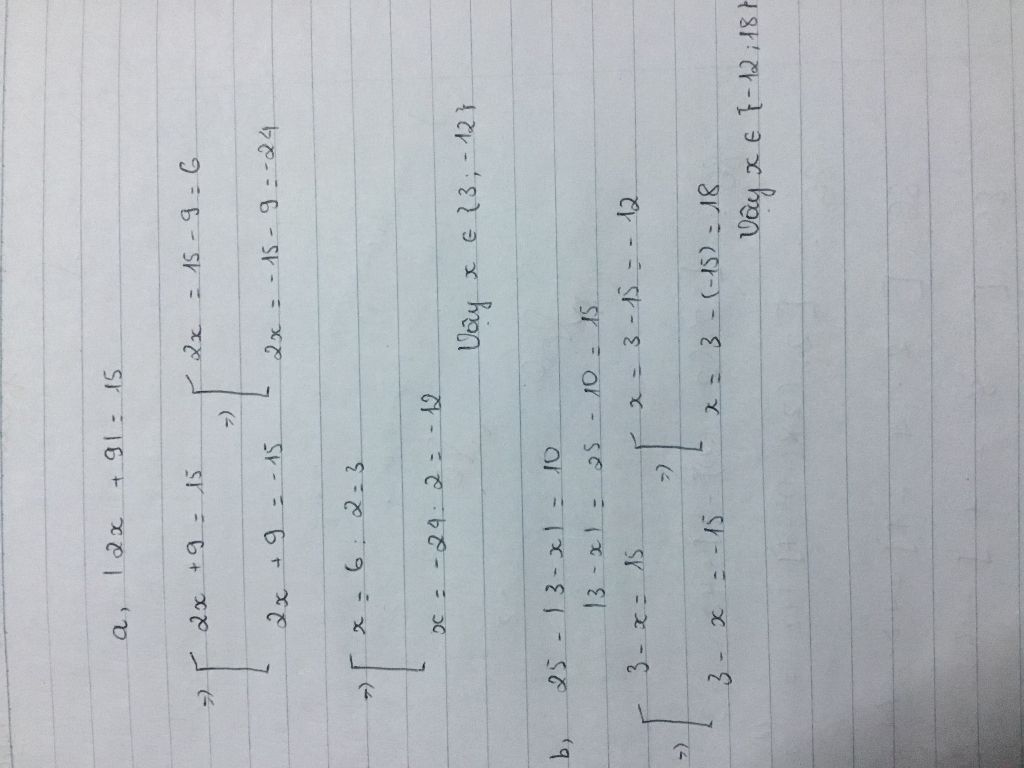 a, |2x + 9| = 15
=> [ 2x + 9 = 15 => [ 2x = 15 - 9 = 6
2x + 9 = -15 2x = -15 - 9 = -24
=> [ x = 6 : 2 = 3
x = -24 : 2 = -12
Vậy x ∈ {3; -12}
b, 25 - |3 - x| = 10
|3 - x| = 25 - 10 = 15
=> [ 3 - x = 15 => [ x = 3 - 15 = -12
3 - x = -15 x = 3 - (-15) = 18
Vậy x ∈ {-12; 18}